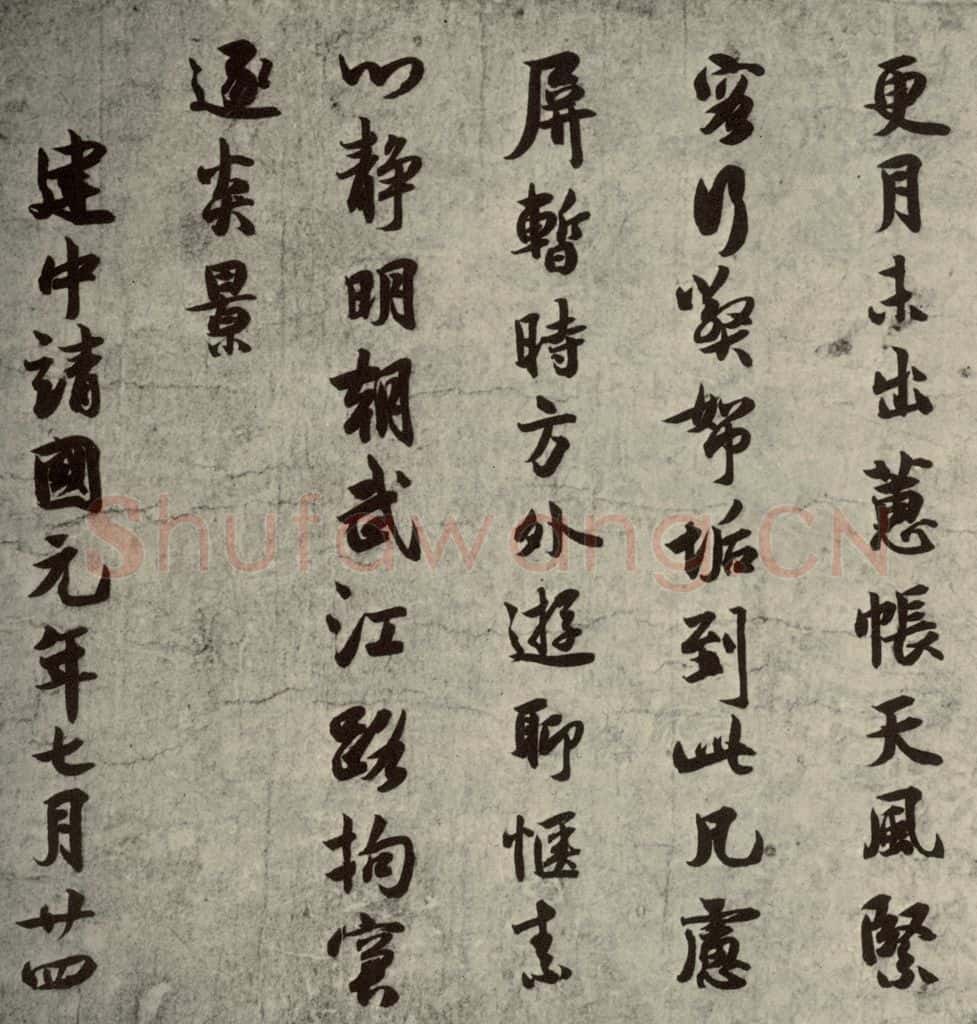 更月未出蕙帳天風緊
客行垢到此凡慮
屏暫時方外遊聊愜素
心靜明朝武江路拘
逐炎景
建中靖國元年七月廿四
Shufawang.CN